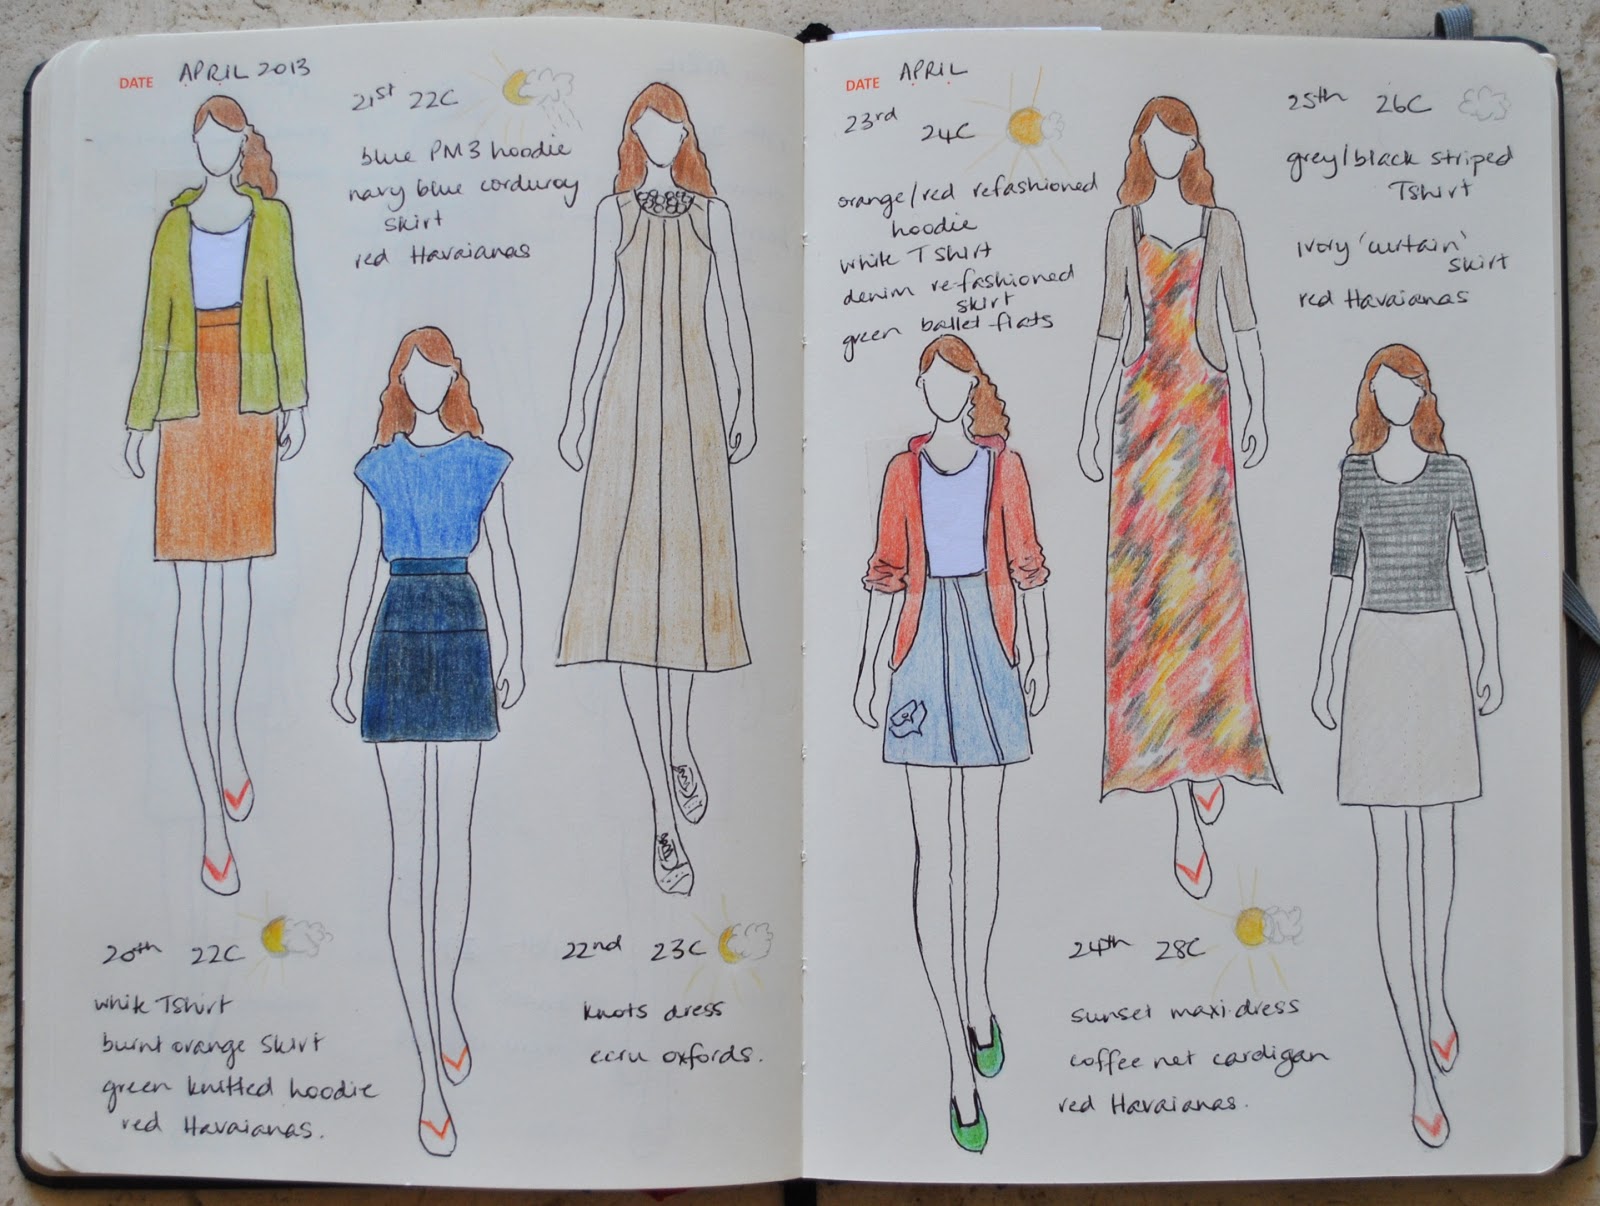 DATE APRIL 2013
21st 22C
blue PM3 hoodie
navy blue corduroy
skirt
red Havaianas
20th 22C
white Tshirt
burnt orange skirt
green knitted hoodie
red Havaianas.
22nd 23C
knots dress
ecru oxfords.
DATE APRIL
23rd 24C
orange/red refashioned
hoodie
white T shirt
denim refashioned
skirt
green ballet flats
25th 26C
grey/black striped
Tshirt
ivory 'curtain'
skirt
red Havaianas
24th 28C
sunset maxi-dress
coffee net cardigan
red Havaianas.